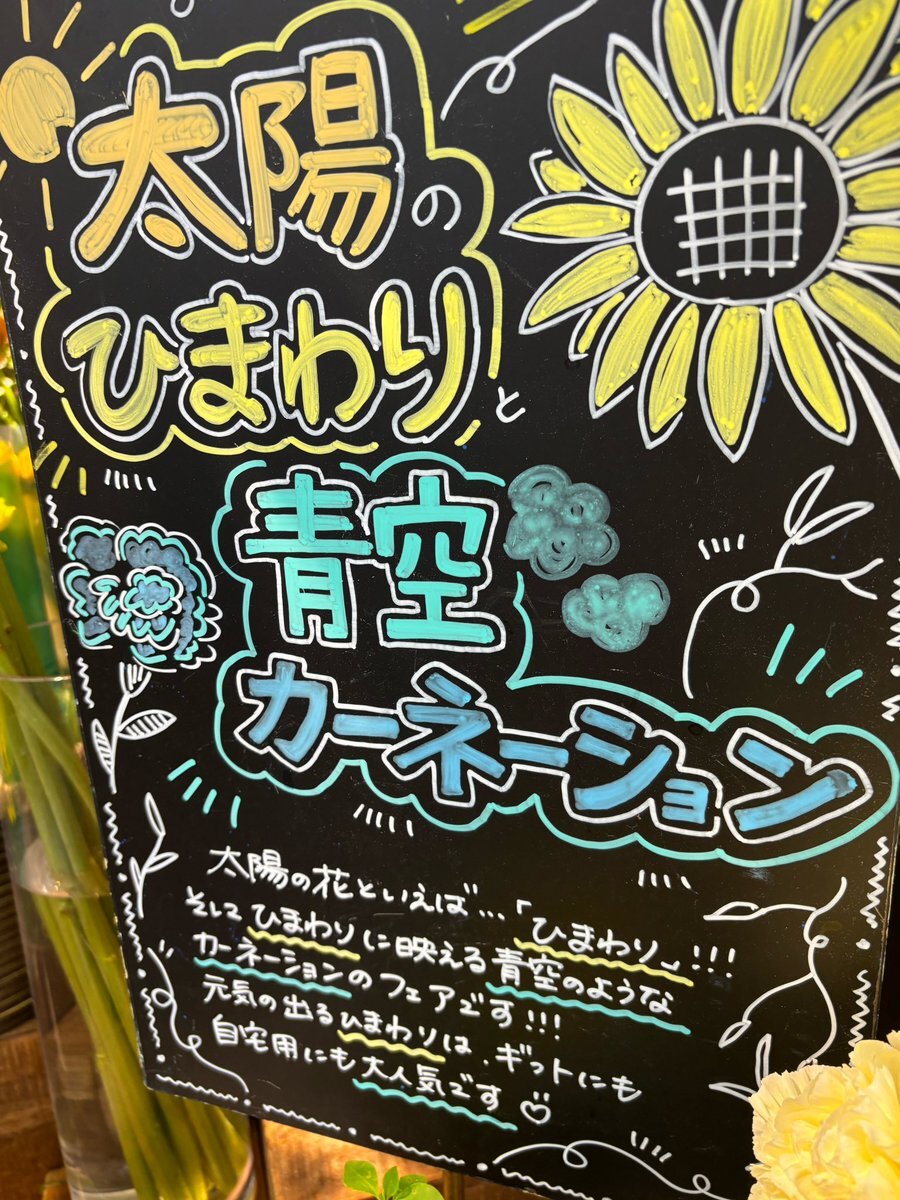 太陽の
ひまわりと
青空
カーネーション
太陽の花といえば…「ひまわり」!!!
そしてひまわりに映える青空のような
カーネーションのフェアです!!!
元気の出るひまわりは、ギフトにも
自宅用にも大人気です♡